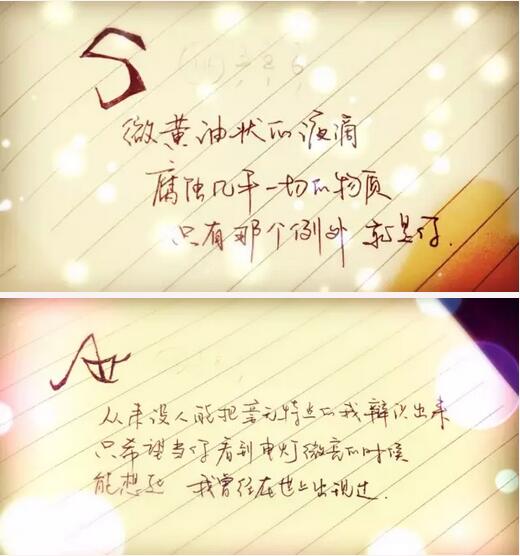 S
微黄油状的液滴
腐蚀几乎一切的物质
只有那个例外 就是你.
Ar
从来没人能把毫无特点的我辩识出来
只希望当你看到电灯微亮的时候
能想起 我曾经在世上出现过.